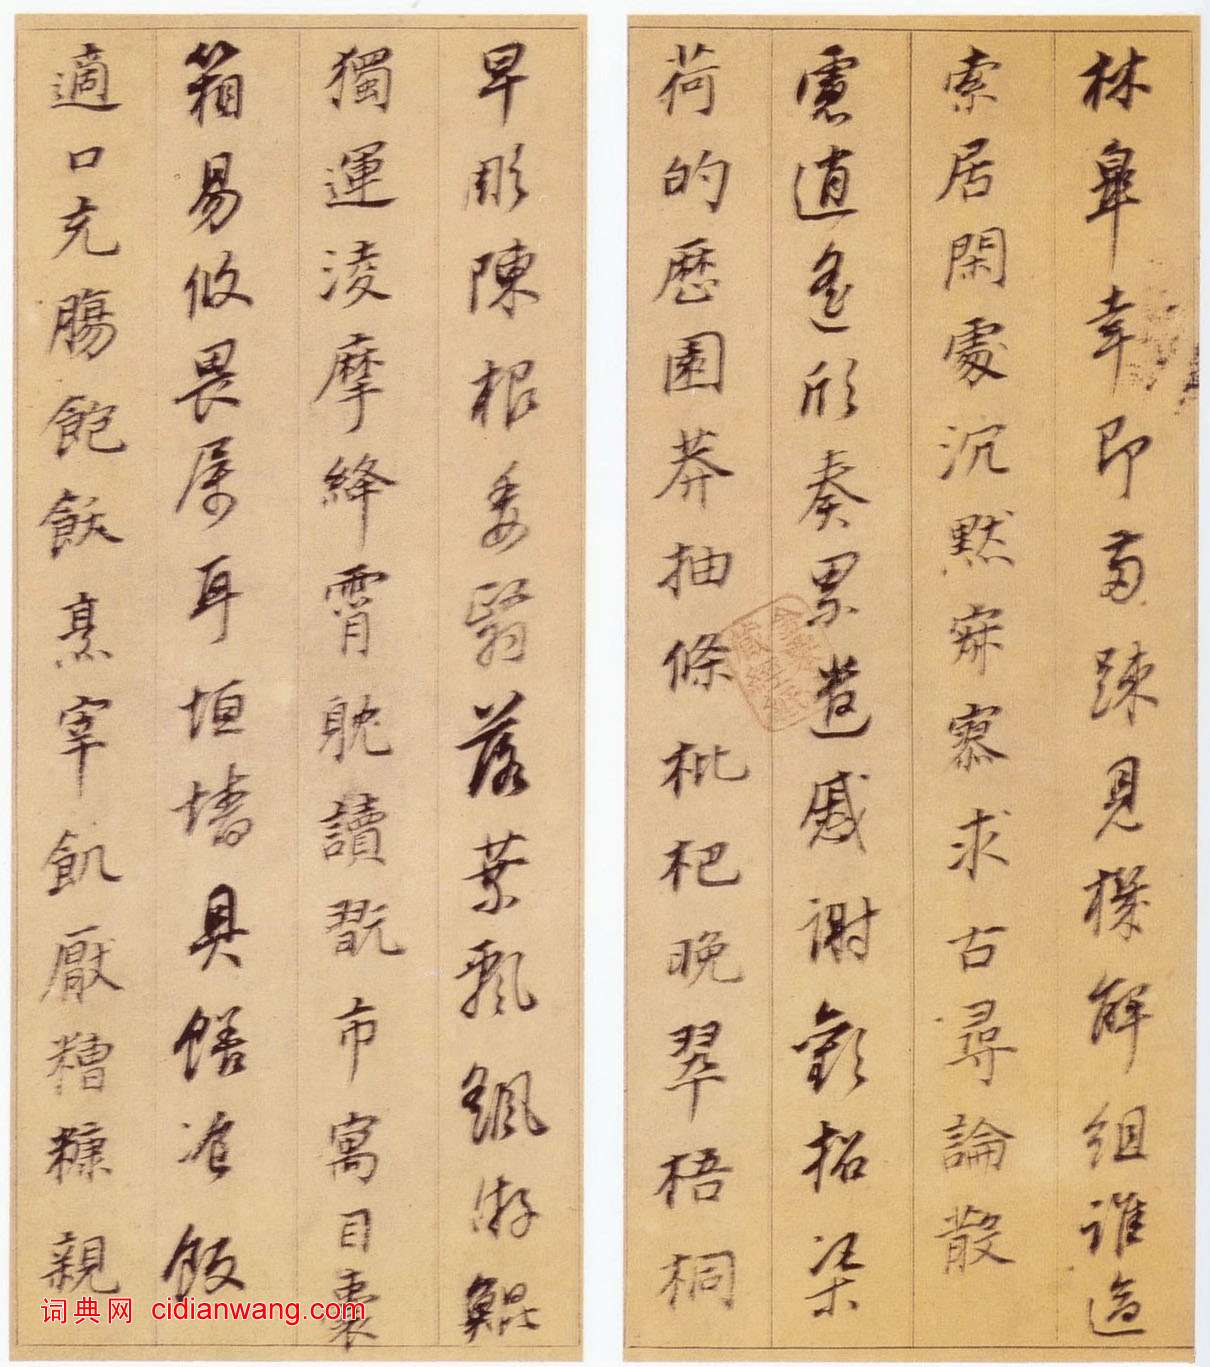 林皋幸即兩疎見機解組誰逼
索居閑處沉默寂寥求古尋論散
慮逍遙欣奏累遣慼謝歡招渠
荷的歷園莽抽條枇杷晚翠梧桐
早彫陳根委翳落葉飄颻游鵾
獨運淩摩絳霄耽讀翫市寓目囊
箱易攸畏屬耳垣墻具膳飡飯
適口充腸飽飫烹宰飢厭糟糠親
词典网 cidianwang.com